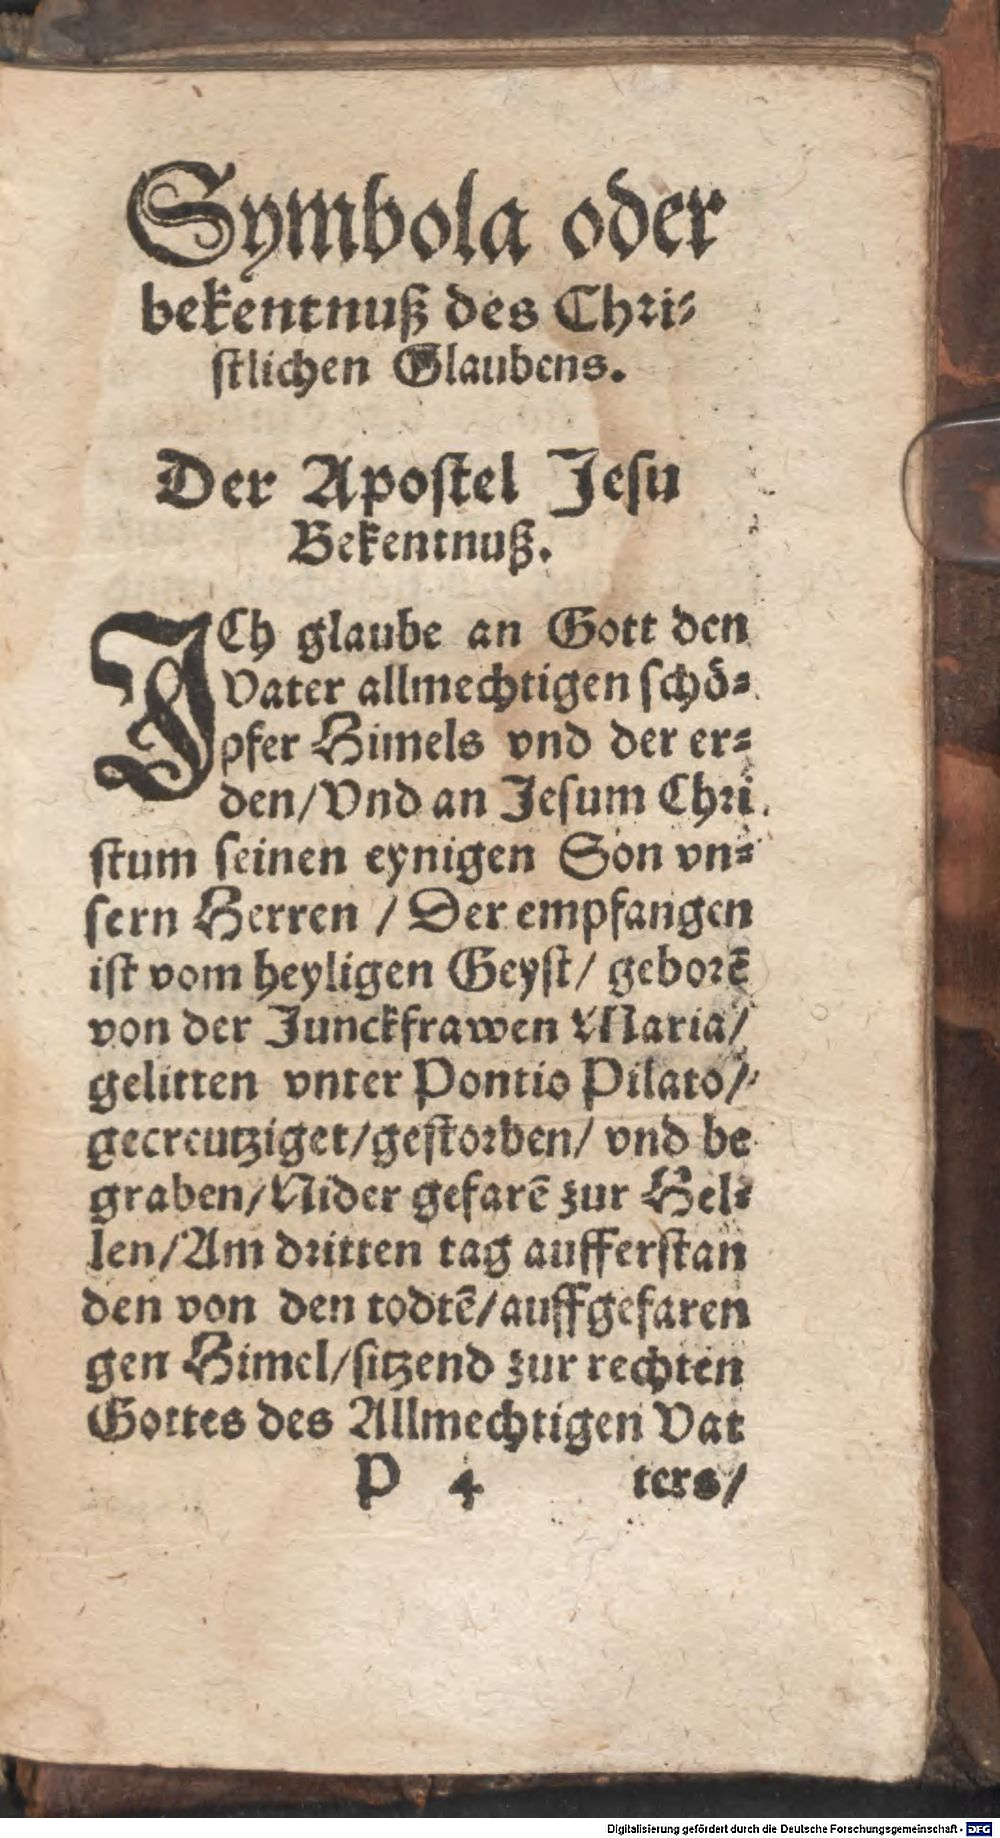 Symbola oder
bekentnuß des Chri⸗
ſtlichen Glaubens.
Der Apoſtel Jeſu
Bekentnuß.
ICh glaube an Gott den
Vater allmechtigen ſchö⸗
pfer Himels vnd der er⸗
den/Vnd an Jeſum Chri
ſtum ſeinen eynigen Son vn⸗
ſern Herren / Der empfangen
iſt vom heyligen Geyſt/ geborē
von der Junckfrawen Maria/
gelitten vnter Pontio Pilato/
gecreutziget/geſtorben/ vnd be
graben/Nider gefarē zur Hel⸗
len/Am dritten tag aufferſtan
den von den todtē/auffgefaren
gen Himel/ſitzend zur rechten
Gottes des Allmechtigen Vat
P 4 ters/
Digitalisierung gefördert durch die Deutsche Forschungsgemeinschaft - DFG